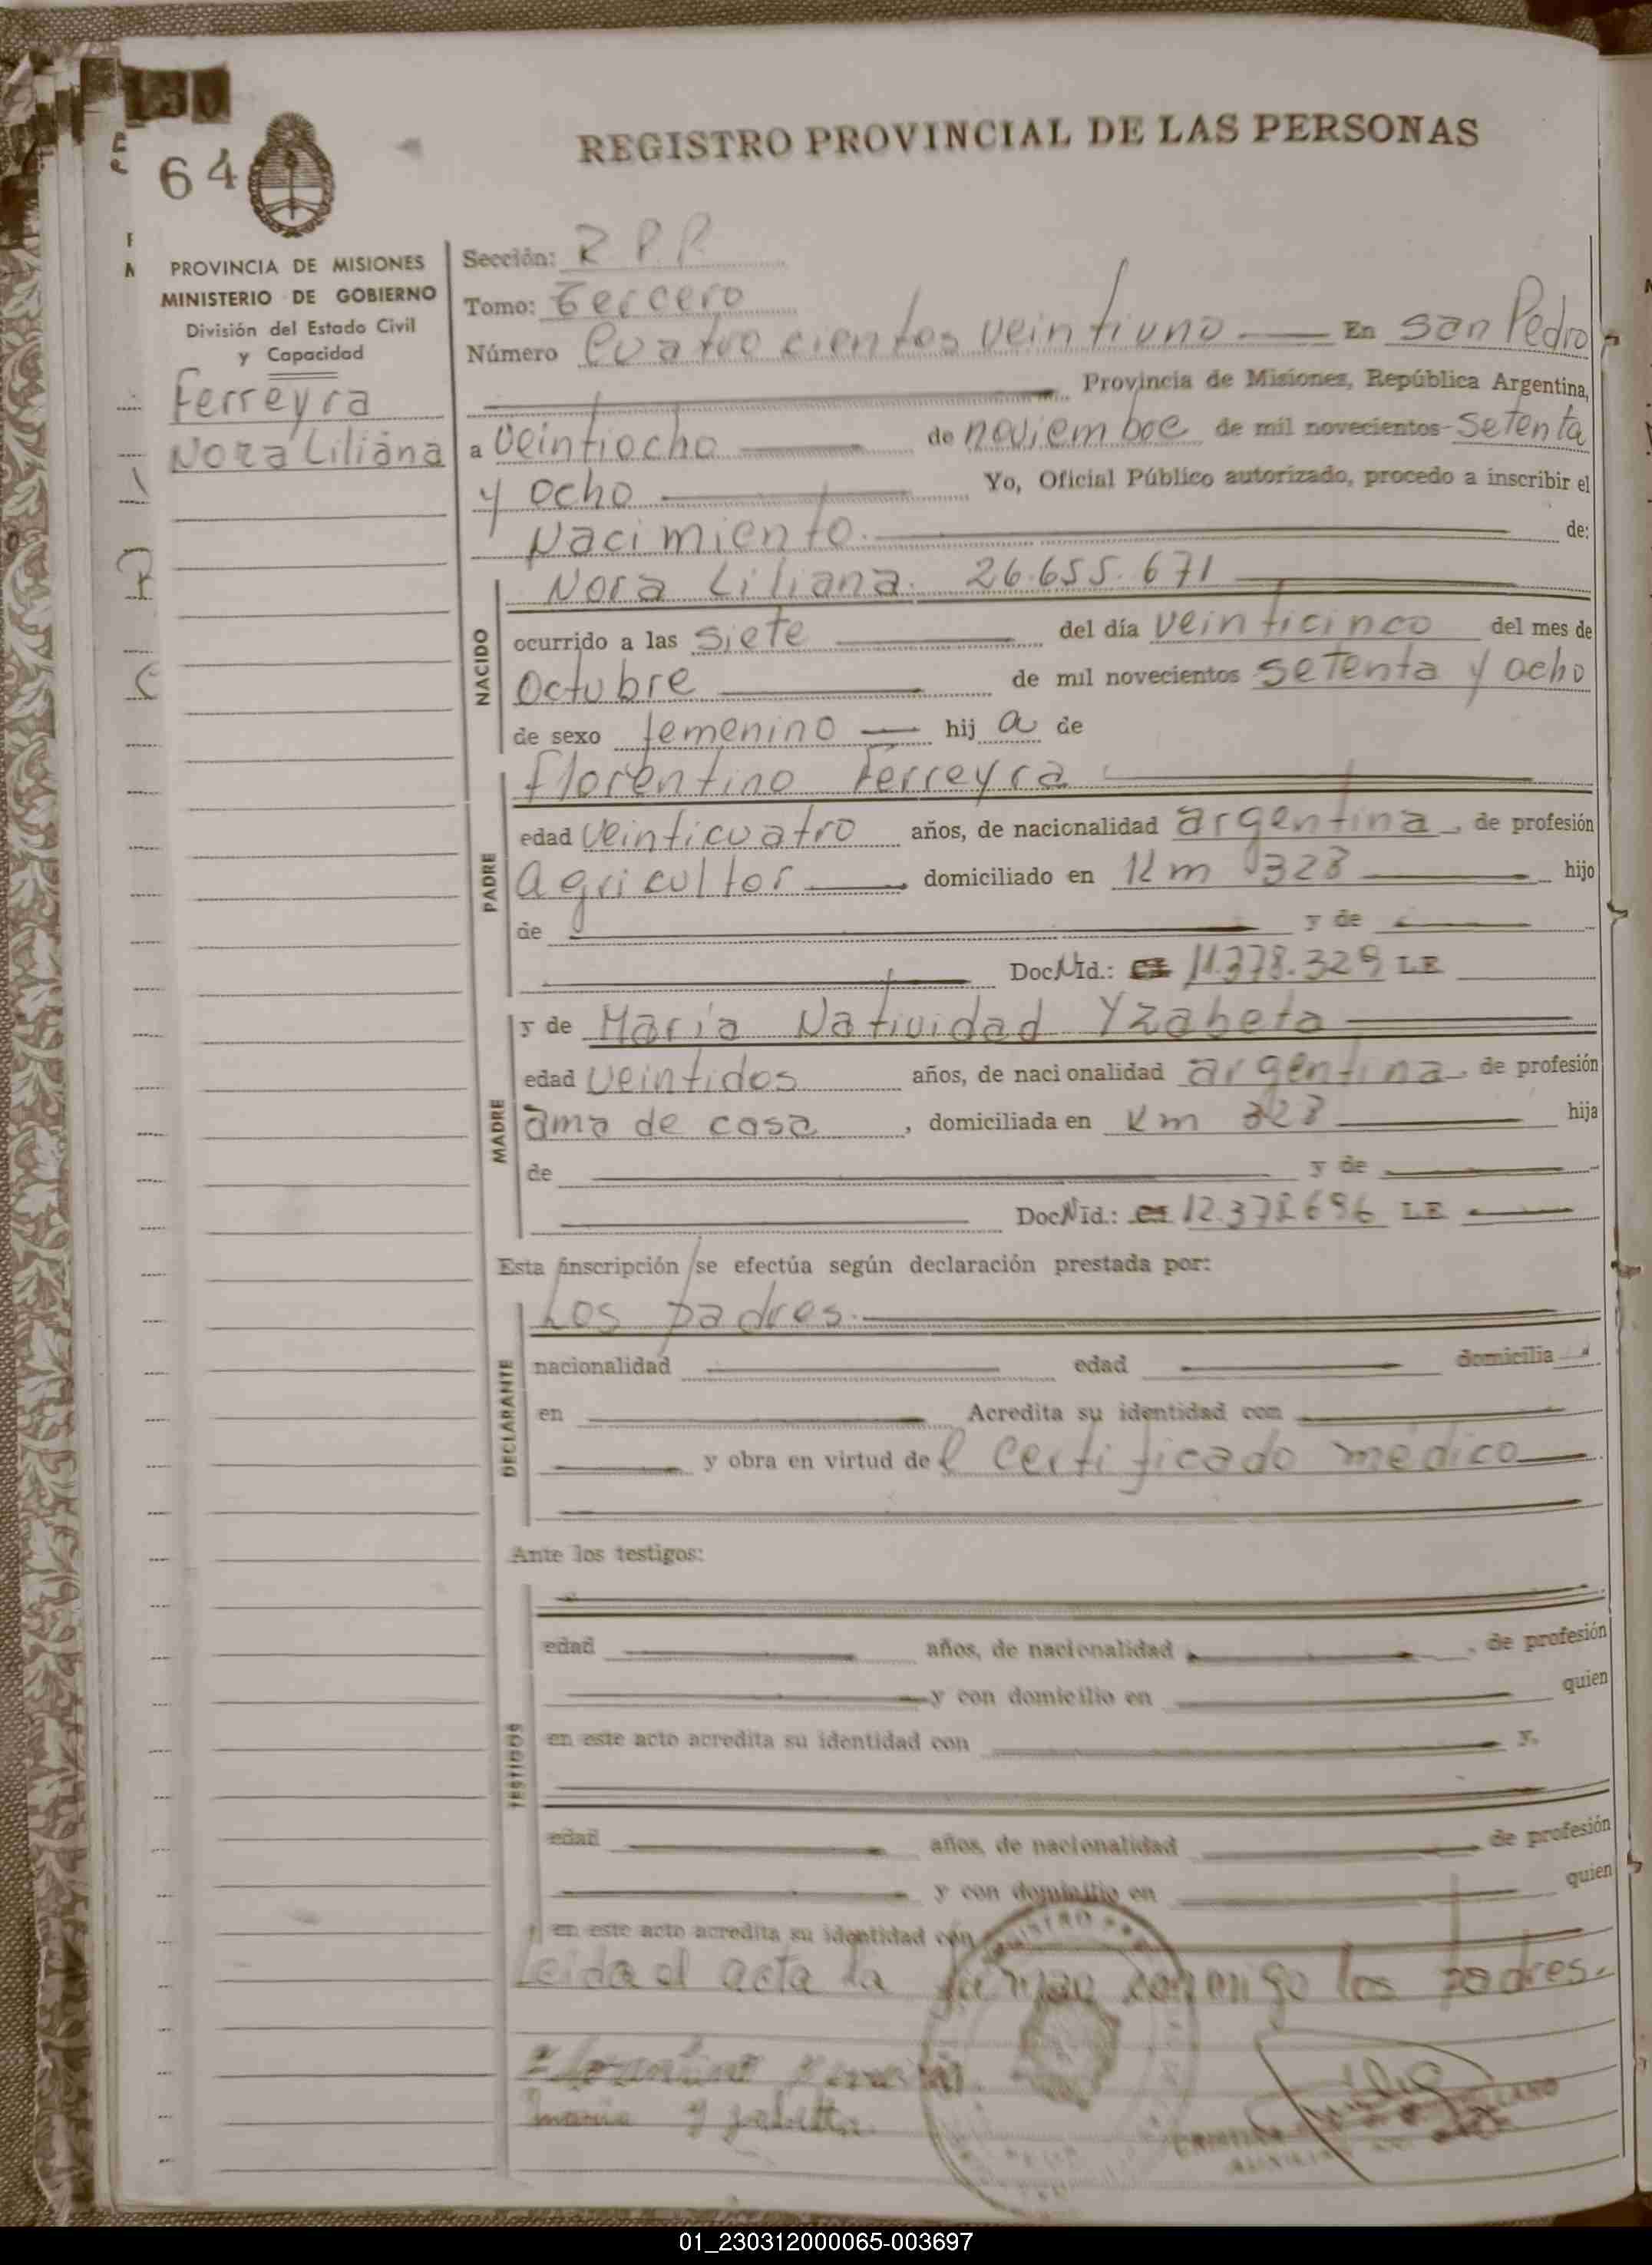 64
REGISTRO PROVINCIAL DE LAS PERSONAS
PROVINCIA DE MISIONES
MINISTERIO DE GOBIERNO
División del Estado Civil
y Capacidad
Ferreyra
Nora Liliana
Sección: R P P
Tomo: Tercero
Número Cuatro cientos veintiuno En San Pedro
Provincia de Misiones, República Argentina,
a veintiocho de noviembre de mil novecientos setenta
y ocho Yo, Oficial Público autorizado, procedo a inscribir el
Nacimiento. de:
NACIDO
Nora Liliana. 26.655.671
ocurrido a las siete del día veinticinco del mes de
Octubre de mil novecientos setenta y ocho
de sexo femenino hij a de
PADRE
Florentino Ferreyra
edad veinticuatro años, de nacionalidad argentina, de profesión
Agricultor, domiciliado en Km 328 hijo
de y de
Doc N Id.: CI 11.378.329 LE
MADRE
y de María Natividad Yzabeta
edad veintidos años, de naci onalidad argentina, de profesión
ama de casa, domiciliada en Km 328 hija
de y de
Doc N Id.: CI 12.378.696 LE
Esta inscripción se efectúa según declaración prestada por:
DECLARANTE
Los padres.
nacionalidad edad domicilia
en Acredita su identidad con
y obra en virtud del Certificado medico
Ante los testigos:
TESTIGOS
edad años, de nacionalidad , de profesión
y con domicilio en quien
en este acto acredita su identidad con y.
edad años, de nacionalidad de profesión
y con domicilio en quien
en este acto acredita su identidad con
Leida el acta la firman conmigo los padres.
Florentino Ferreira
Maria Yzabetta
01_230312000065-003697